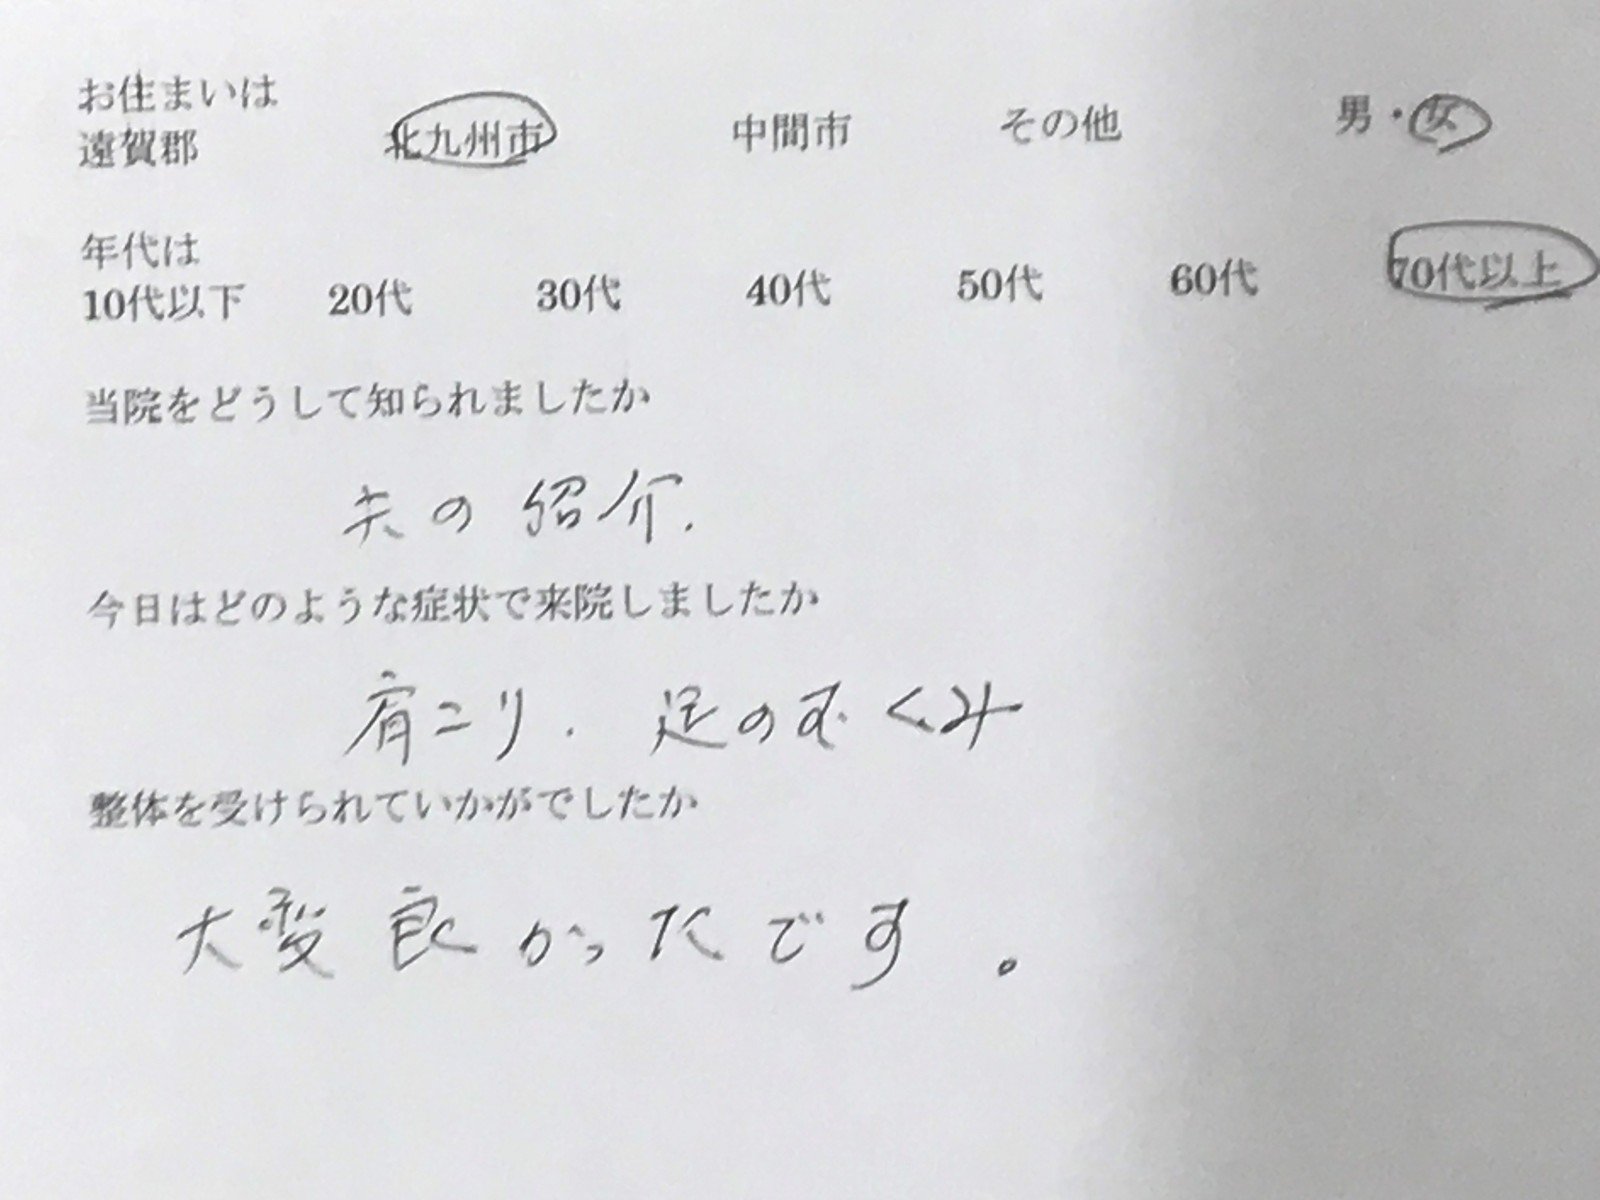 お住まいは
遠賀郡 北九州市 中間市 その他 男・女
年代は
10代以下 20代 30代 40代 50代 60代 70代以上
当院をどうして知られましたか
夫の紹介.
今日はどのような症状で来院しましたか
肩こり. 足のむくみ
整体を受けられていかがでしたか
大変良かったです。